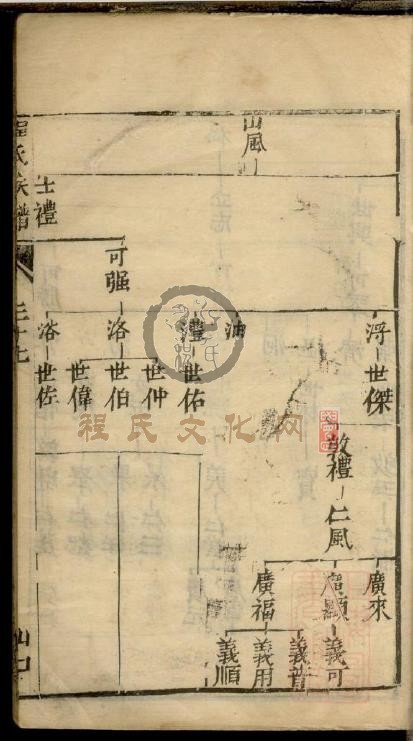 山風
浮 世傑
敦禮 仁風
廣來
廣顯 義可
義普
廣福 義用
義順
油
澧 世佑
世仲
可强 洛 世伯
世偉
士禮
浴 世佐
程氏族譜
三十七
山口
程氏文化网